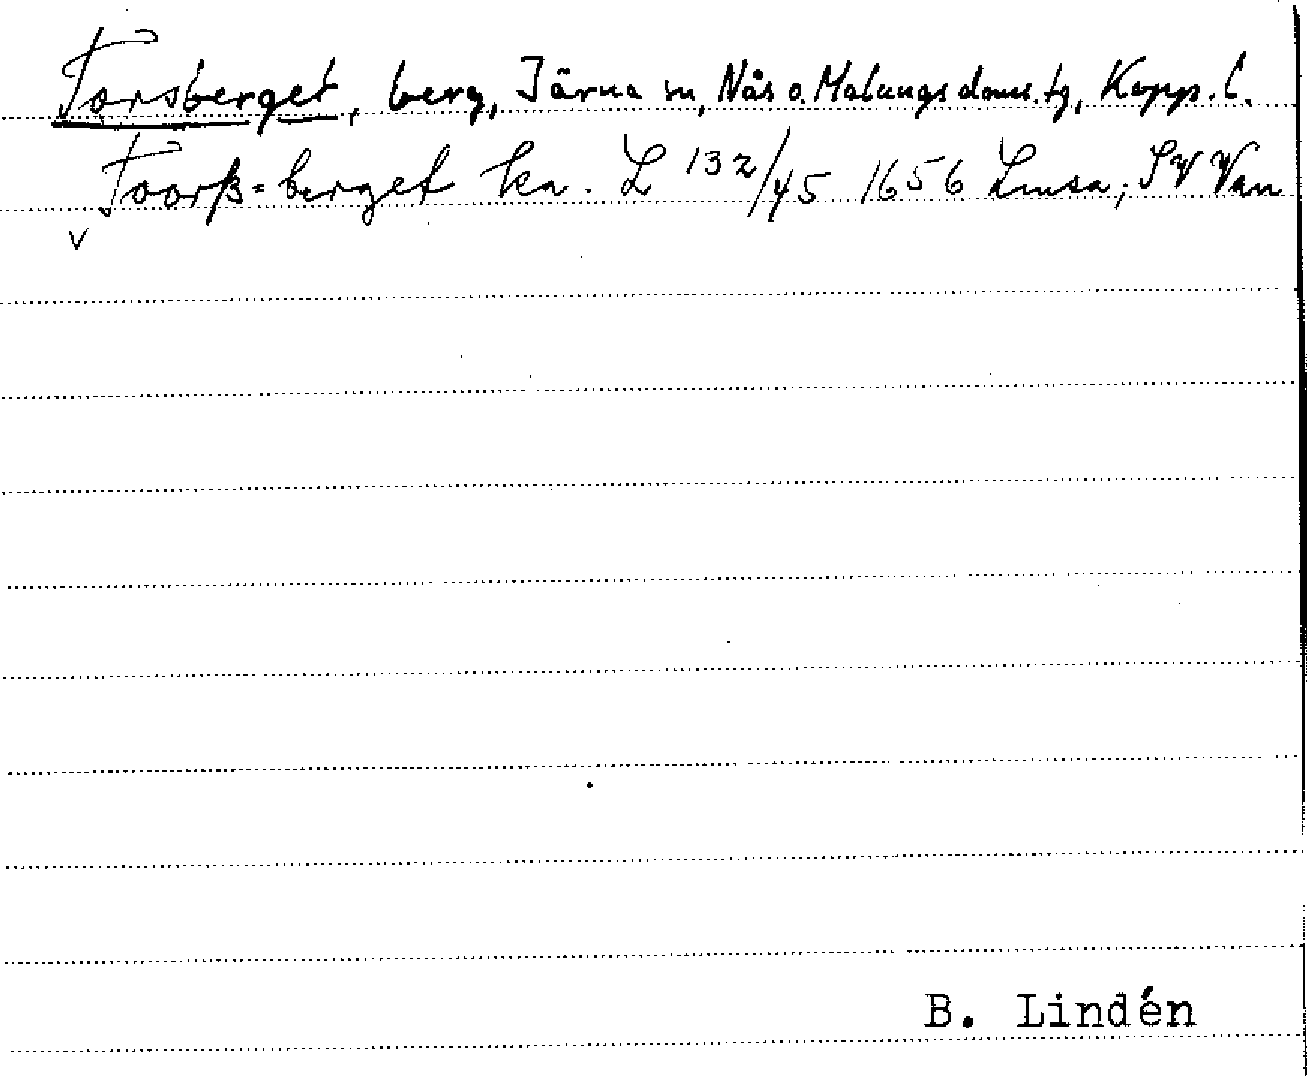 Torsberget, berg, Järna sn, Nås o. Malungs doms. tg, Kopp. l.
Toorß=berget ka. L 132/45 1656 Limsa; SV Van
v
B. Lindén